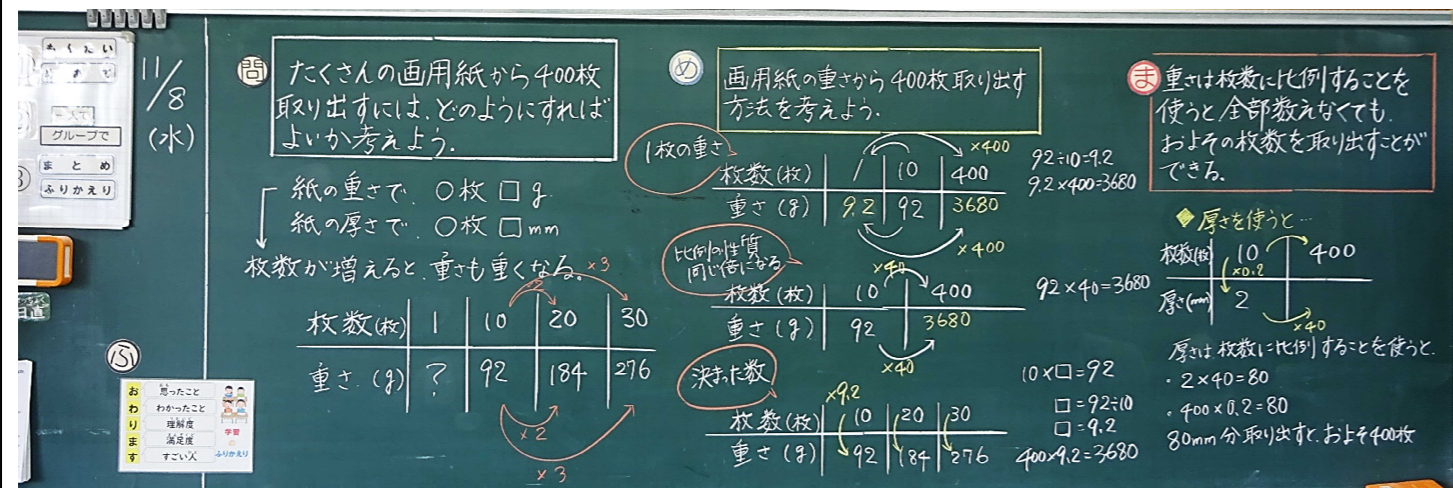 11/8
(水)
グループで
まとめ
ふりかえり
日直
問
たくさんの画用紙から400枚
取り出すには、どのようにすれば
よいか考えよう。
紙の重さで、○枚□g
紙の厚さで、○枚□mm
枚数が増えると、重さも重くなる。
×3
×2
枚数(枚) 1 10 20 30
重さ(g) ? 92 184 276
×2
×3
ふ
お 思ったこと
わ わかったこと
り 理解度
ま 満足度
す すごい人
学習
の
ふりかえり
め
画用紙の重さから400枚取り出す
方法を考えよう。
1枚の重さ
×400
枚数(枚) 1 10 400
重さ(g) 9.2 92 3680
×400
92÷10=9.2
9.2×400=3680
比例の性質
同じ倍になる
×40
枚数(枚) 10 400
重さ(g) 92 3680
×40
92×40=3680
決まった数
×9.2
枚数(枚) 10 20 30
重さ(g) 92 184 276
10×□=92
□=92÷10
□=9.2
400×9.2=3680
ま
重さは枚数に比例することを
使うと全部数えなくても、
およその枚数を取り出すことが
できる。
◆厚さを使うと…
枚数(枚) 10 400
×0.2
厚さ(mm) 2
×40
厚さは、枚数に比例することを使うと、
・2×40=80
・400×0.2=80
80mm分取り出すと、およそ400枚